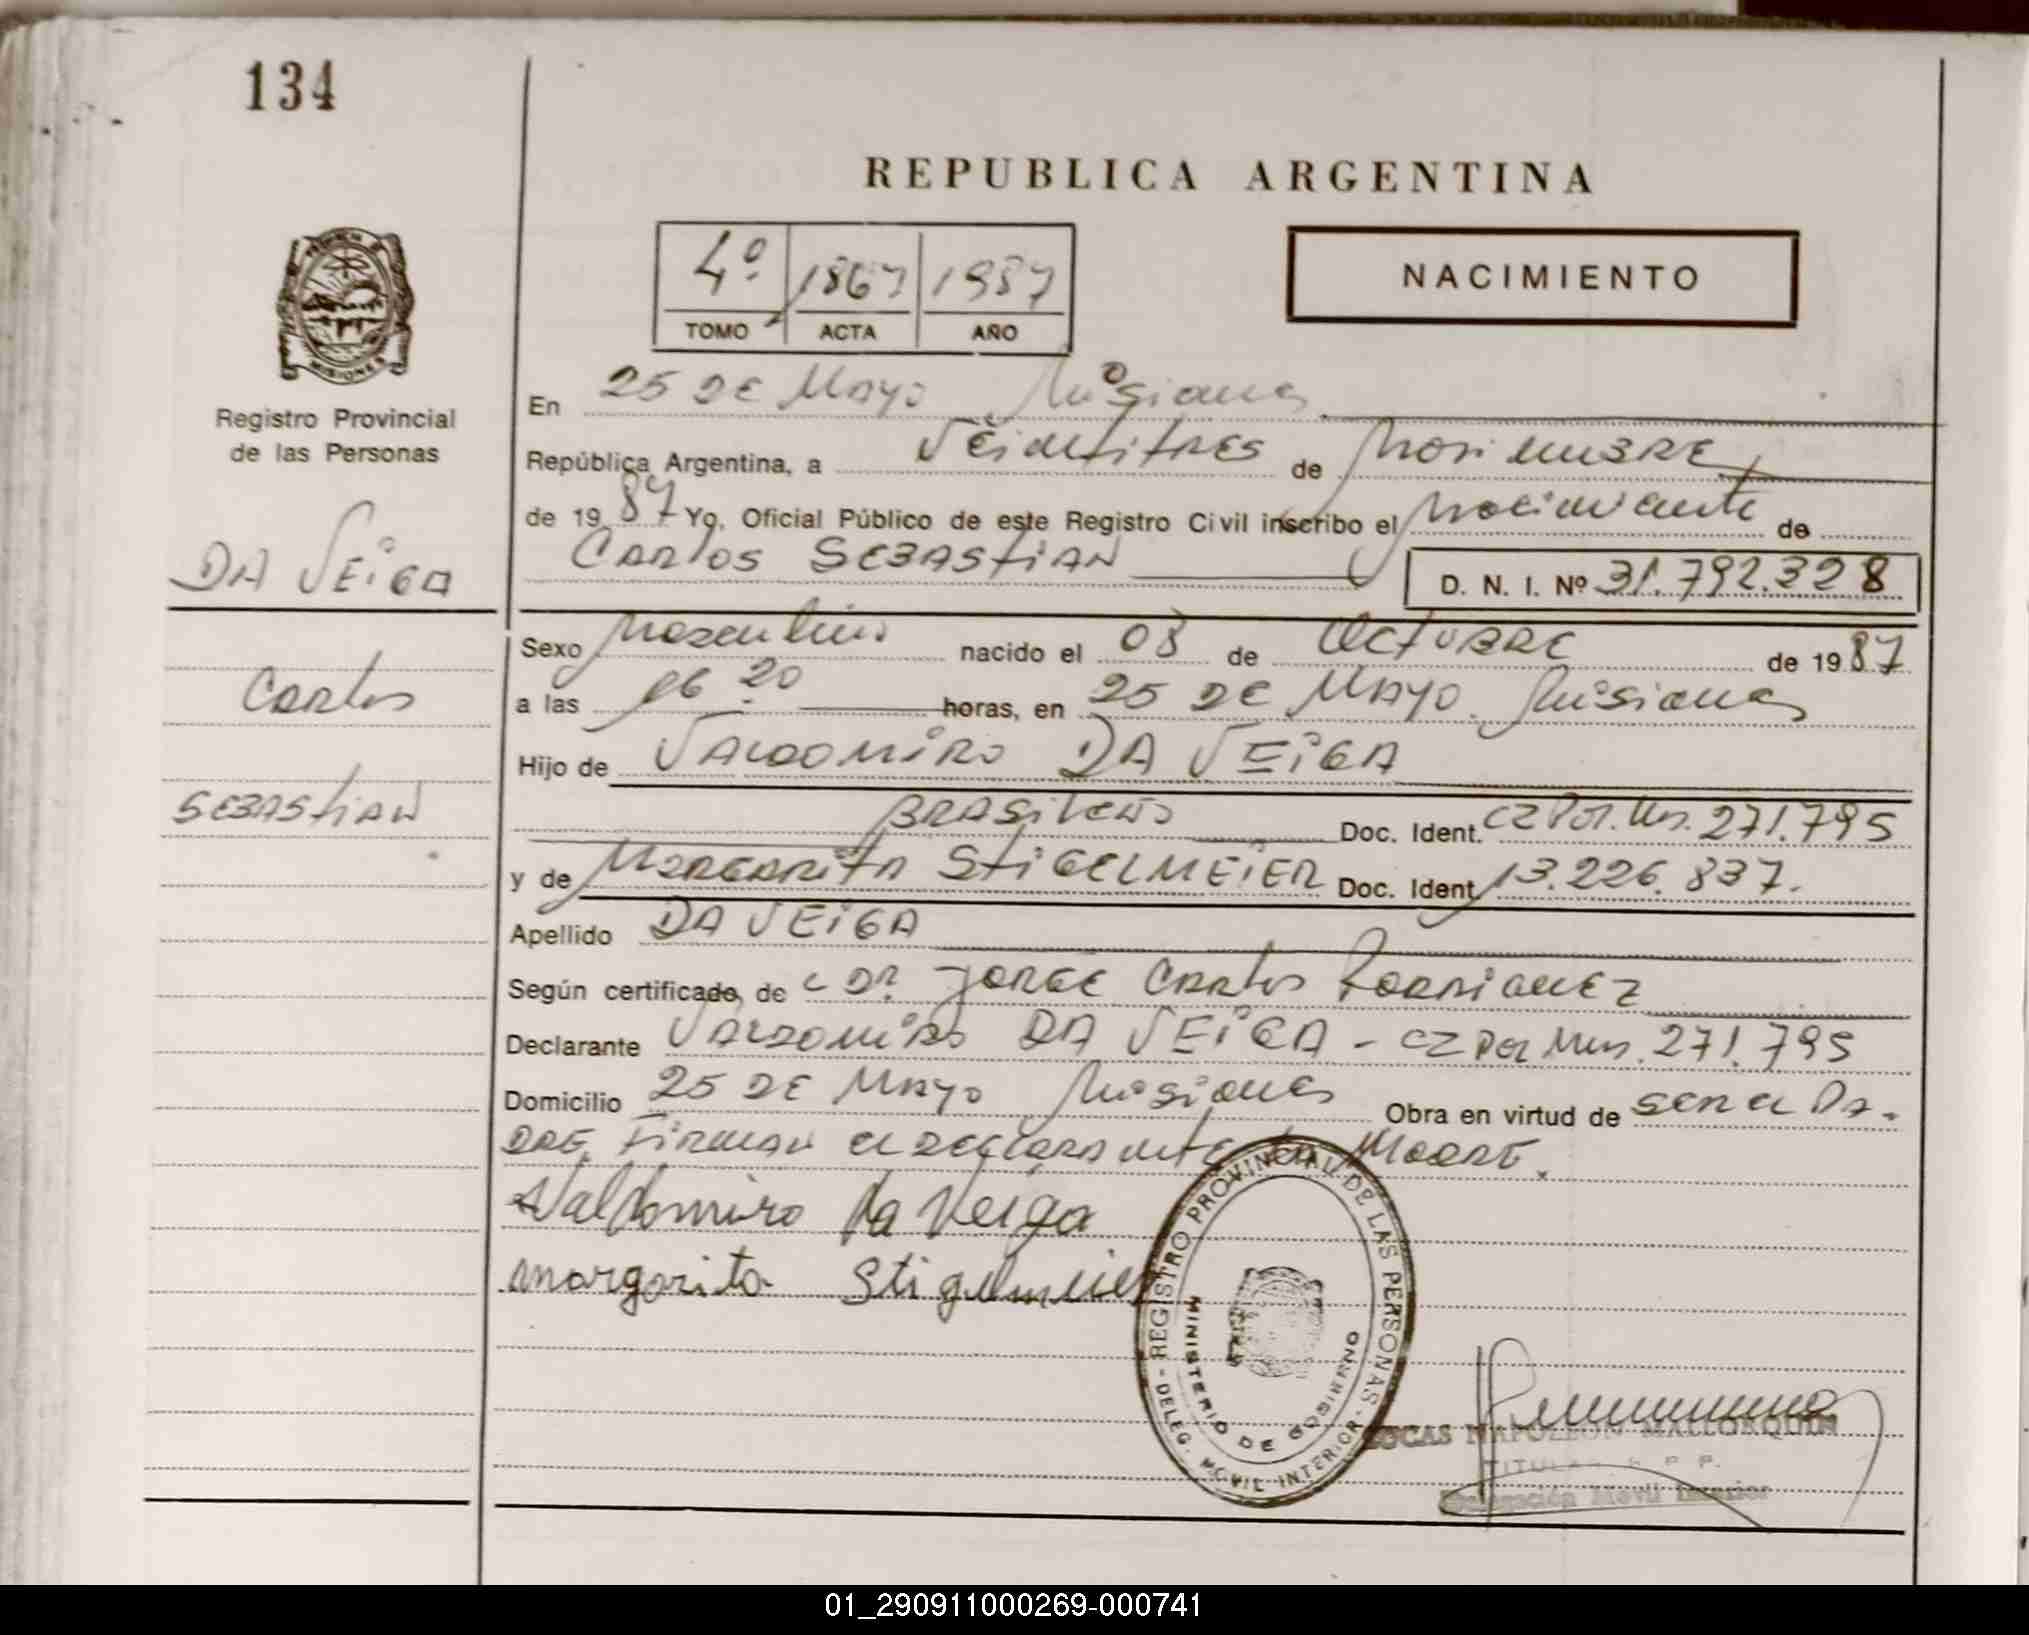 134
REPUBLICA ARGENTINA
4º 1867 1987
TOMO ACTA AÑO
NACIMIENTO
PROVINCIA DE
MISIONES
Registro Provincial
de las Personas
En 25 DE MAYO Misiones
República Argentina, a VEiNtitRES de NoviEMBRE
de 1987 Yo, Oficial Público de este Registro Civil inscribo el Nacimiento de
CARlOS SEBAStiAN
D. N. I. Nº 31.792.328
DA VEiGA
Carlos
SEBAStiAN
Sexo Masculino nacido el 08 de OctUBRE de 1987
a las 06 20 horas, en 25 DE MAYO Misiones
Hijo de VALDOMiRO DA VEiGA
BRASilEÑO Doc. Ident. CZ Pol. Mns. 271.795
y de MARGARitA StiGELMEiER Doc. Ident. 13.226.837.
Apellido DA VEiGA
Según certificado, de DR. JORGE CARlos RODRiGUEZ
Declarante VALDOMiRO DA VEiGA - CZ Pol Mns. 271.795
Domicilio 25 DE MAYO Misiones Obra en virtud de SER El PA-
DRE. FiRMAN El DEClARANtE lA MADRE.
Valdomiro da Veiga
margarita Stigelmeier
REGISTRO PROVINCIAL DE LAS PERSONAS
- DELEG. MOVIL INTERIOR -
MINISTERIO DE GOBIERNO
LUCAS NAPOLEON MALLORQUIN
TITULAR R. P. P.
Delegación Móvil Interior
01_290911000269-000741